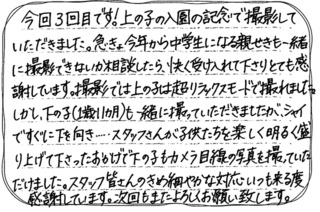 今回3回目です!上の子の入園の記念で撮影して
いただきました。急きょ今年から中学生になる親せきも一緒
に撮影できないか相談したら、快く受け入れて下さりとても感
謝しています。撮影では上の子は超リラックスモードで撮れました。
しかし、下の子(1歳11か月)も一緒に撮っていただきましたが、シャイ
ですぐに下を向き……スタッフさんが子供たちを楽しく明るく盛
り上げて下さったおかげで下の子もカメラ目線の写真を撮っていた
だけました。スタッフ皆さんのきめ細やかな対応にいつも来る度
感謝しています。次回もまたよろしくお願い致します。